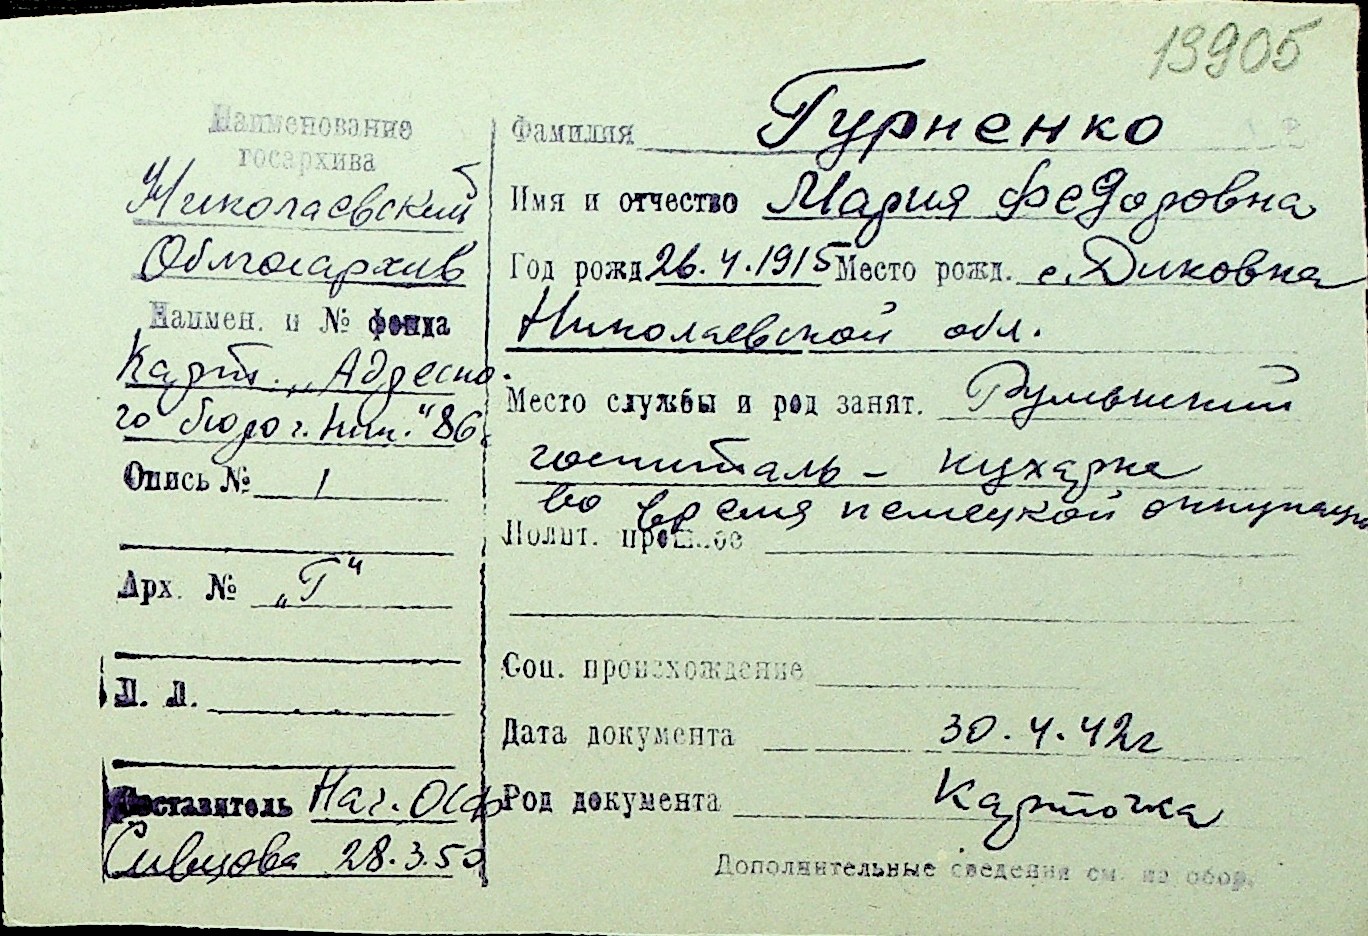 13905
Наименование
госархива
Николаевский
Облгосархив
Наимен. и № фонда
Карт. „Адресно-
го бюро г. Ник." 86
Опись № 1
Арх. № „Г"
Л. Л.
Составитель Нач. ОСФ
Сивцова 28.3.50
Фамилия Гурненко
Имя и отчество Мария Федоровна
Год рожд. 26.4.1915 Место рожд. с. Диковка
Николаевской обл.
Место службы и род занят. Румынский
госпиталь - кухарка
во время немецкой оккупации
Полит. прошлое
Соц. происхождение
Дата документа 30.4.42г
Род документа Карточка
Дополнительные сведения см. на обор.